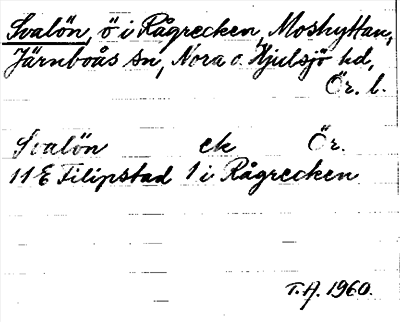 Svalön, ö i Rågrecken, Moshyttan,
Järnboås sn, Nora o. Hjulsjö hd,
Ör. l.
Svalön ek Ör.
11 E Filipstad 1 i Rågrecken
T.H. 1960.